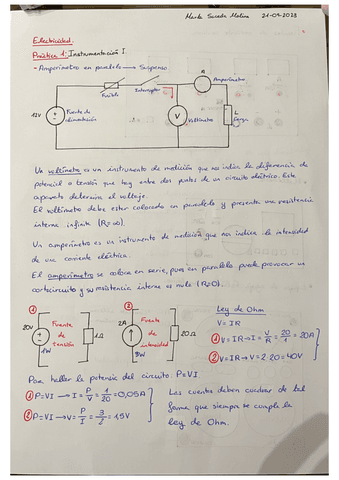 Marta Saceda Molina 21-09-2023
Electricidad.
Práctica 1: Instrumentación I.
- Amperímetro en paralelo → Suspenso
Fusible
Interruptor
A
Amperímetro
12V
Fuente de
alimentación
V
Voltímetro
L
Carga
Un voltímetro es un instrumento de medición que nos indica la diferencia de
potencial o tensión que hay entre dos puntos de un circuito eléctrico. Este
aparato determina el voltaje.
El voltímetro debe estar colocado en paralelo y presenta una resistencia
interna infinita (R=∞).
Un amperímetro es un instrumento de medición que nos indica la intensidad
de una corriente eléctrica.
El amperímetro se coloca en serie, pues en paralelo puede provocar un
cortocircuito y su resistencia interna es nula (R=0).
① ② Ley de Ohm
20V Fuente de tensión 1W 1Ω
2A Fuente de intensidad 3W 20Ω
V = IR
① V = IR → I = V/R = 20/1 = 20A
② V = IR → V = 2·20 = 40V
Para hallar la potencia del circuito: P=VI
① P=VI → I = P/V = 1/20 = 0,05A
② P=VI → V = P/I = 3/2 = 1,5V
Las cuentas deben cuadrar de tal
forma que siempre se cumpla la
ley de Ohm.